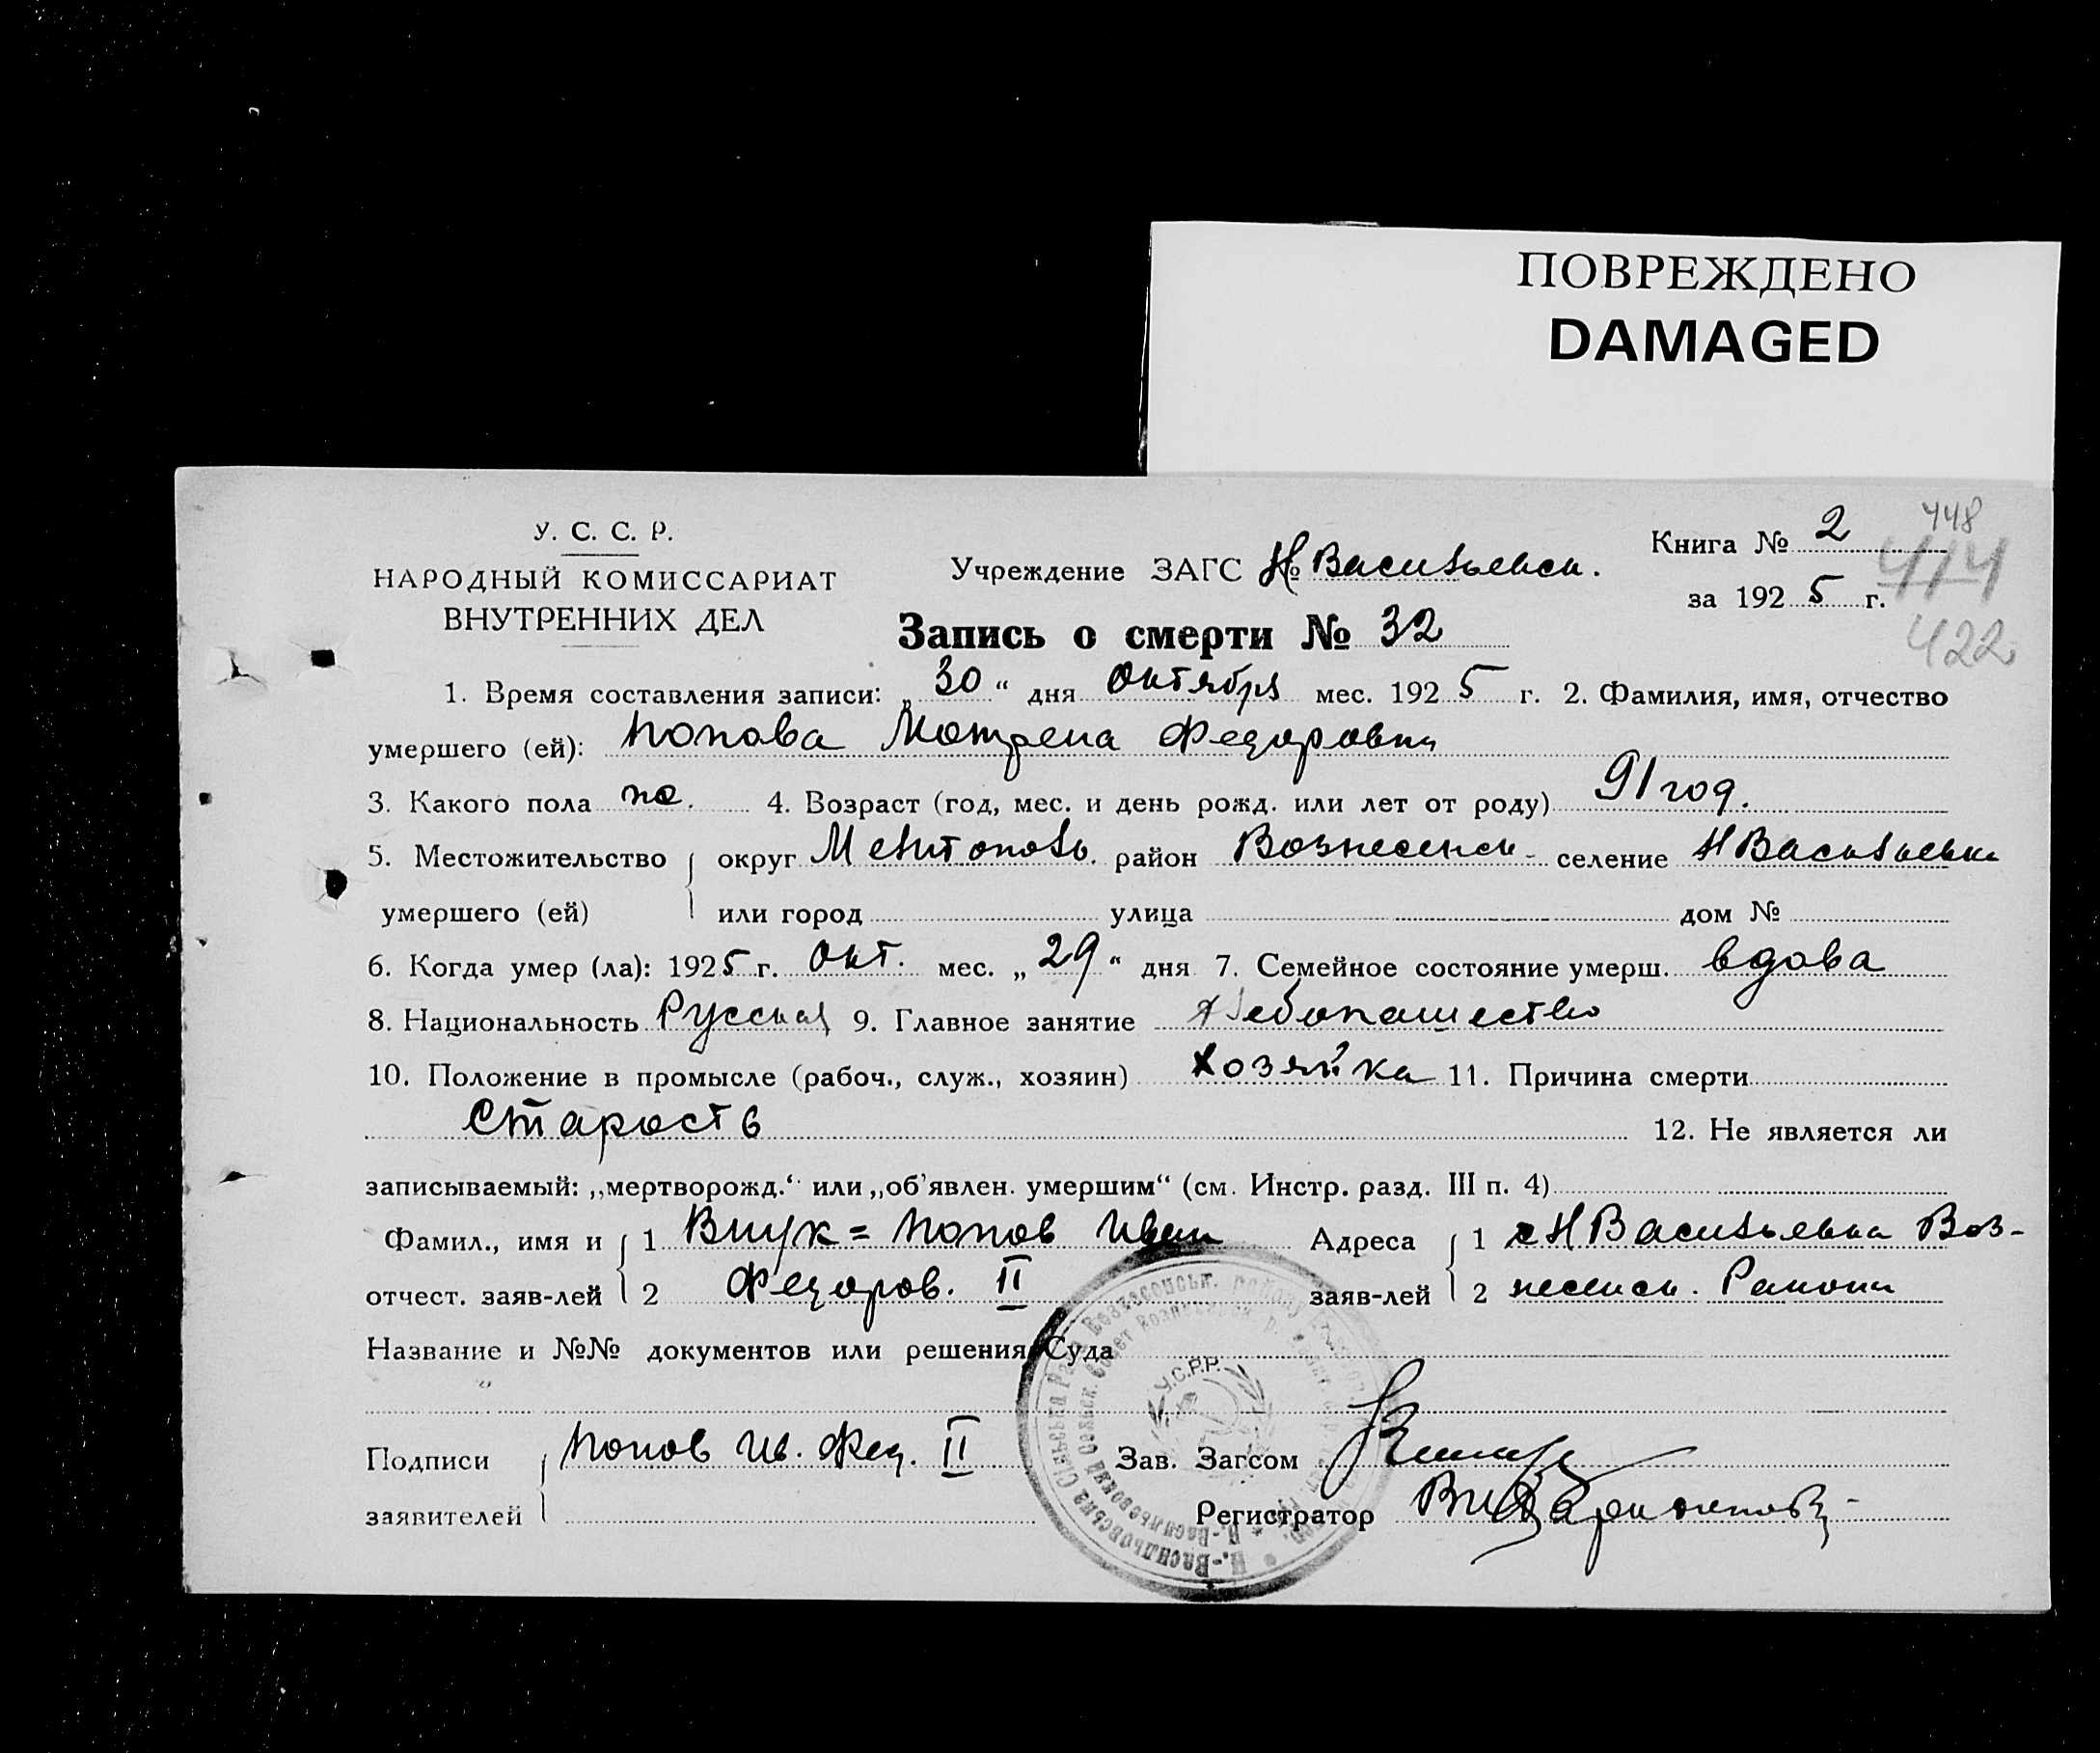 ПОВРЕЖДЕНО
DAMAGED
У. С. С. Р.
НАРОДНЫЙ КОМИССАРИАТ
ВНУТРЕННИХ ДЕЛ
Учреждение ЗАГС Н Васильевск.
Книга № 2
448
414
за 1925 г.
422
Запись о смерти № 32
1. Время составления записи: „30“ дня Октября мес. 1925 г. 2. Фамилия, имя, отчество
умершего (ей): Попова Мотрена Федоровна
3. Какого пола 4. Возраст (год, мес. и день рожд. или лет от роду) 91 год.
5. Местожительство округ Мелитополь. район Вознесенск- селение Н Васильевка
умершего (ей) или город улица дом №
6. Когда умер (ла): 1925 г. Окт. мес. „29“ дня 7. Семейное состояние умерш. вдова
8. Национальность Русская 9. Главное занятие Хлебопашество
10. Положение в промысле (рабоч., служ., хозяин) Хозяйка 11. Причина смерти
Старость 12. Не является ли
записываемый: „мертворожд.“ или „об'явлен. умершим“ (см. Инстр. разд. III п. 4)
Фамил., имя и 1 Внук = Попов Иван Адреса 1 с Н Васильевка Воз-
отчест. заяв-лей 2 Федоров. II заяв-лей 2 несенск. Района
Название и №№ документов или решения Суда
У.С.Р.Р.
Подписи Попов Ив. Фед. II Зав. Загсом
заявителей Регистратор
Н.-Васильовська Сільська Рада Вознесенськ. району